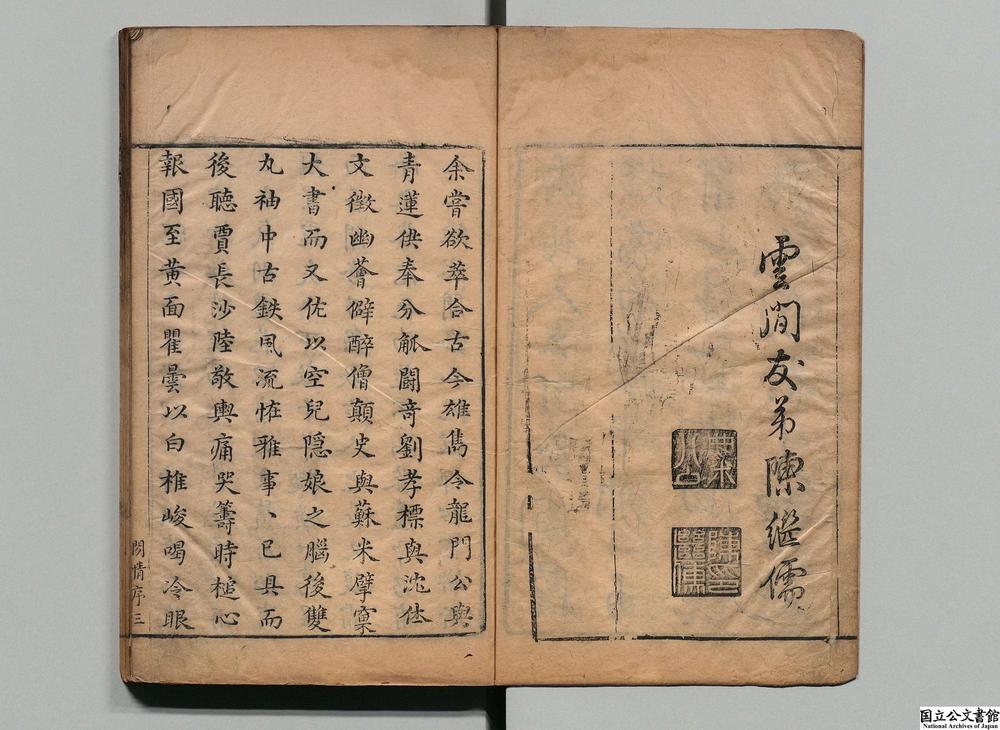 雲間友弟陳繼儒
余嘗欲萃合古今雄雋令龍門公與
青蓮供奉分觚鬪奇劉孝標與沈休
文徵幽薈僻醉僧顛史與蘇米擘窠
大書而又佐以空兒隠娘之腦後雙
丸袖中古鉄風流恠雅事〻已具而
後聽賈長沙陸敬輿痛哭籌時槌心
報國至黄面瞿曇以白椎峻喝冷眼
閒情序 三
国立公文書館
National Archives of Japan